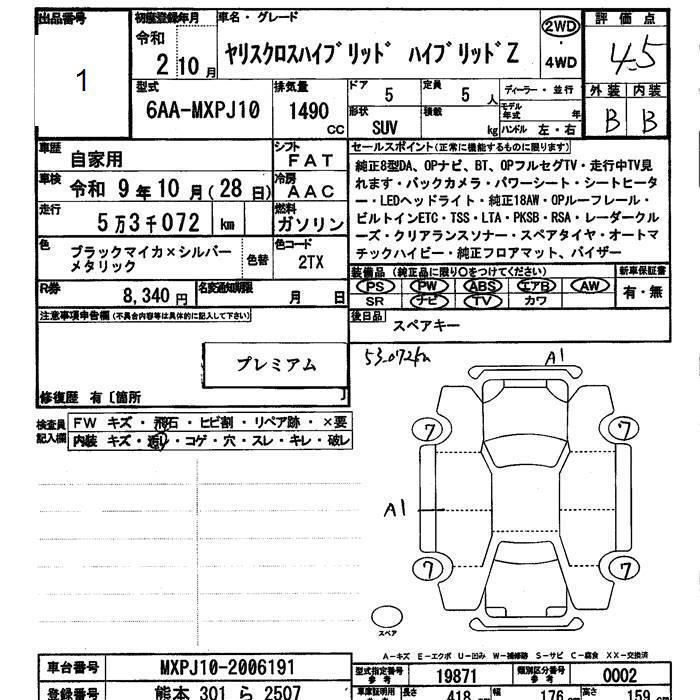 出品番号
1
初度登録年月
令和
2 10 月
車名・グレード
ヤリスクロスハイブリッド ハイブリッドZ
2WD
・
4WD
評価点
4.5
外装 内装
B B
型式
6AA-MXPJ10
排気量
1490
CC
ドア
5
定員
5 人
形状
SUV
積載
kg
ディーラー・並行
モデル年式 年
ハンドル 左・右
車歴
自家用
シフト
FAT
車検
令和 9 年 10 月 ( 28 日)
冷房
AAC
走行
5 万 3 千 072 km
燃料
ガソリン
色
ブラックマイカ×シルバー
メタリック
色替
色コード
2TX
R券
8,340 円
名変通知期限
月 日
セールスポイント(正常に機能するものに限ります)
純正8型DA、OPナビ、BT、OPフルセグTV・走行中TV見
れます・バックカメラ・パワーシート・シートヒータ
ー・LEDヘッドライト・純正18AW・OPルーフレール・
ビルトインETC・TSS・LTA・PKSB・RSA・レーダークル
ーズ・クリアランスソナー・スペアタイヤ・オートマ
チックハイビー・純正フロアマット、バイザー
装備品 (純正品に限り○をつけてください)
PS PW ABS エアB AW
SR ナビ TV カワ
新車保証書
有・無
後日品
スペアキー
注意事項申告欄(不具合内容等は具体的に記入して下さい)
プレミアム
修復歴 有〔箇所 〕
検査員
記入欄
FW キズ・飛石・ヒビ割・リペア跡・×要
内装 キズ・汚れ・コゲ・穴・スレ・キレ・破レ
53,072km
A1
7 7
A1
7 7
スペア
A-キズ E-エクボ U-凹み W-補修跡 S-サビ C-腐食 XX-交換済
車台番号
MXPJ10-2006191
型式指定番号
参考
19871
類別区分番号
参考
0002
登録番号
熊本 301 ら 2507
車庫証明用
長さ
418 cm
幅
176 cm
高さ
159 cm